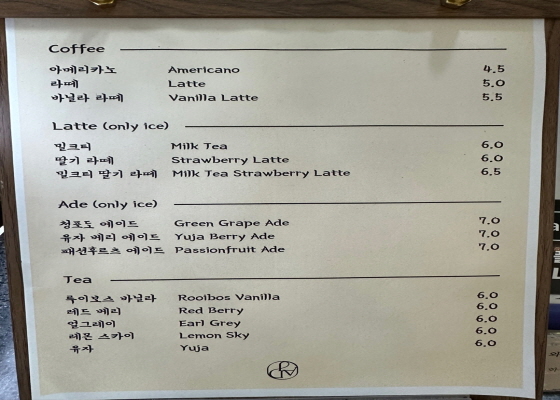 Coffee
아메리카노 Americano 4.5
라떼 Latte 5.0
바닐라 라떼 Vanilla Latte 5.5
Latte (only ice)
밀크티 Milk Tea 6.0
딸기 라떼 Strawberry Latte 6.0
밀크티 딸기 라떼 Milk Tea Strawberry Latte 6.5
Ade (only ice)
청포도 에이드 Green Grape Ade 7.0
유자 베리 에이드 Yuja Berry Ade 7.0
패션후르츠 에이드 Passionfruit Ade 7.0
Tea
루이보스 바닐라 Rooibos Vanilla 6.0
레드 베리 Red Berry 6.0
얼그레이 Earl Grey 6.0
레몬 스카이 Lemon Sky 6.0
유자 Yuja 6.0